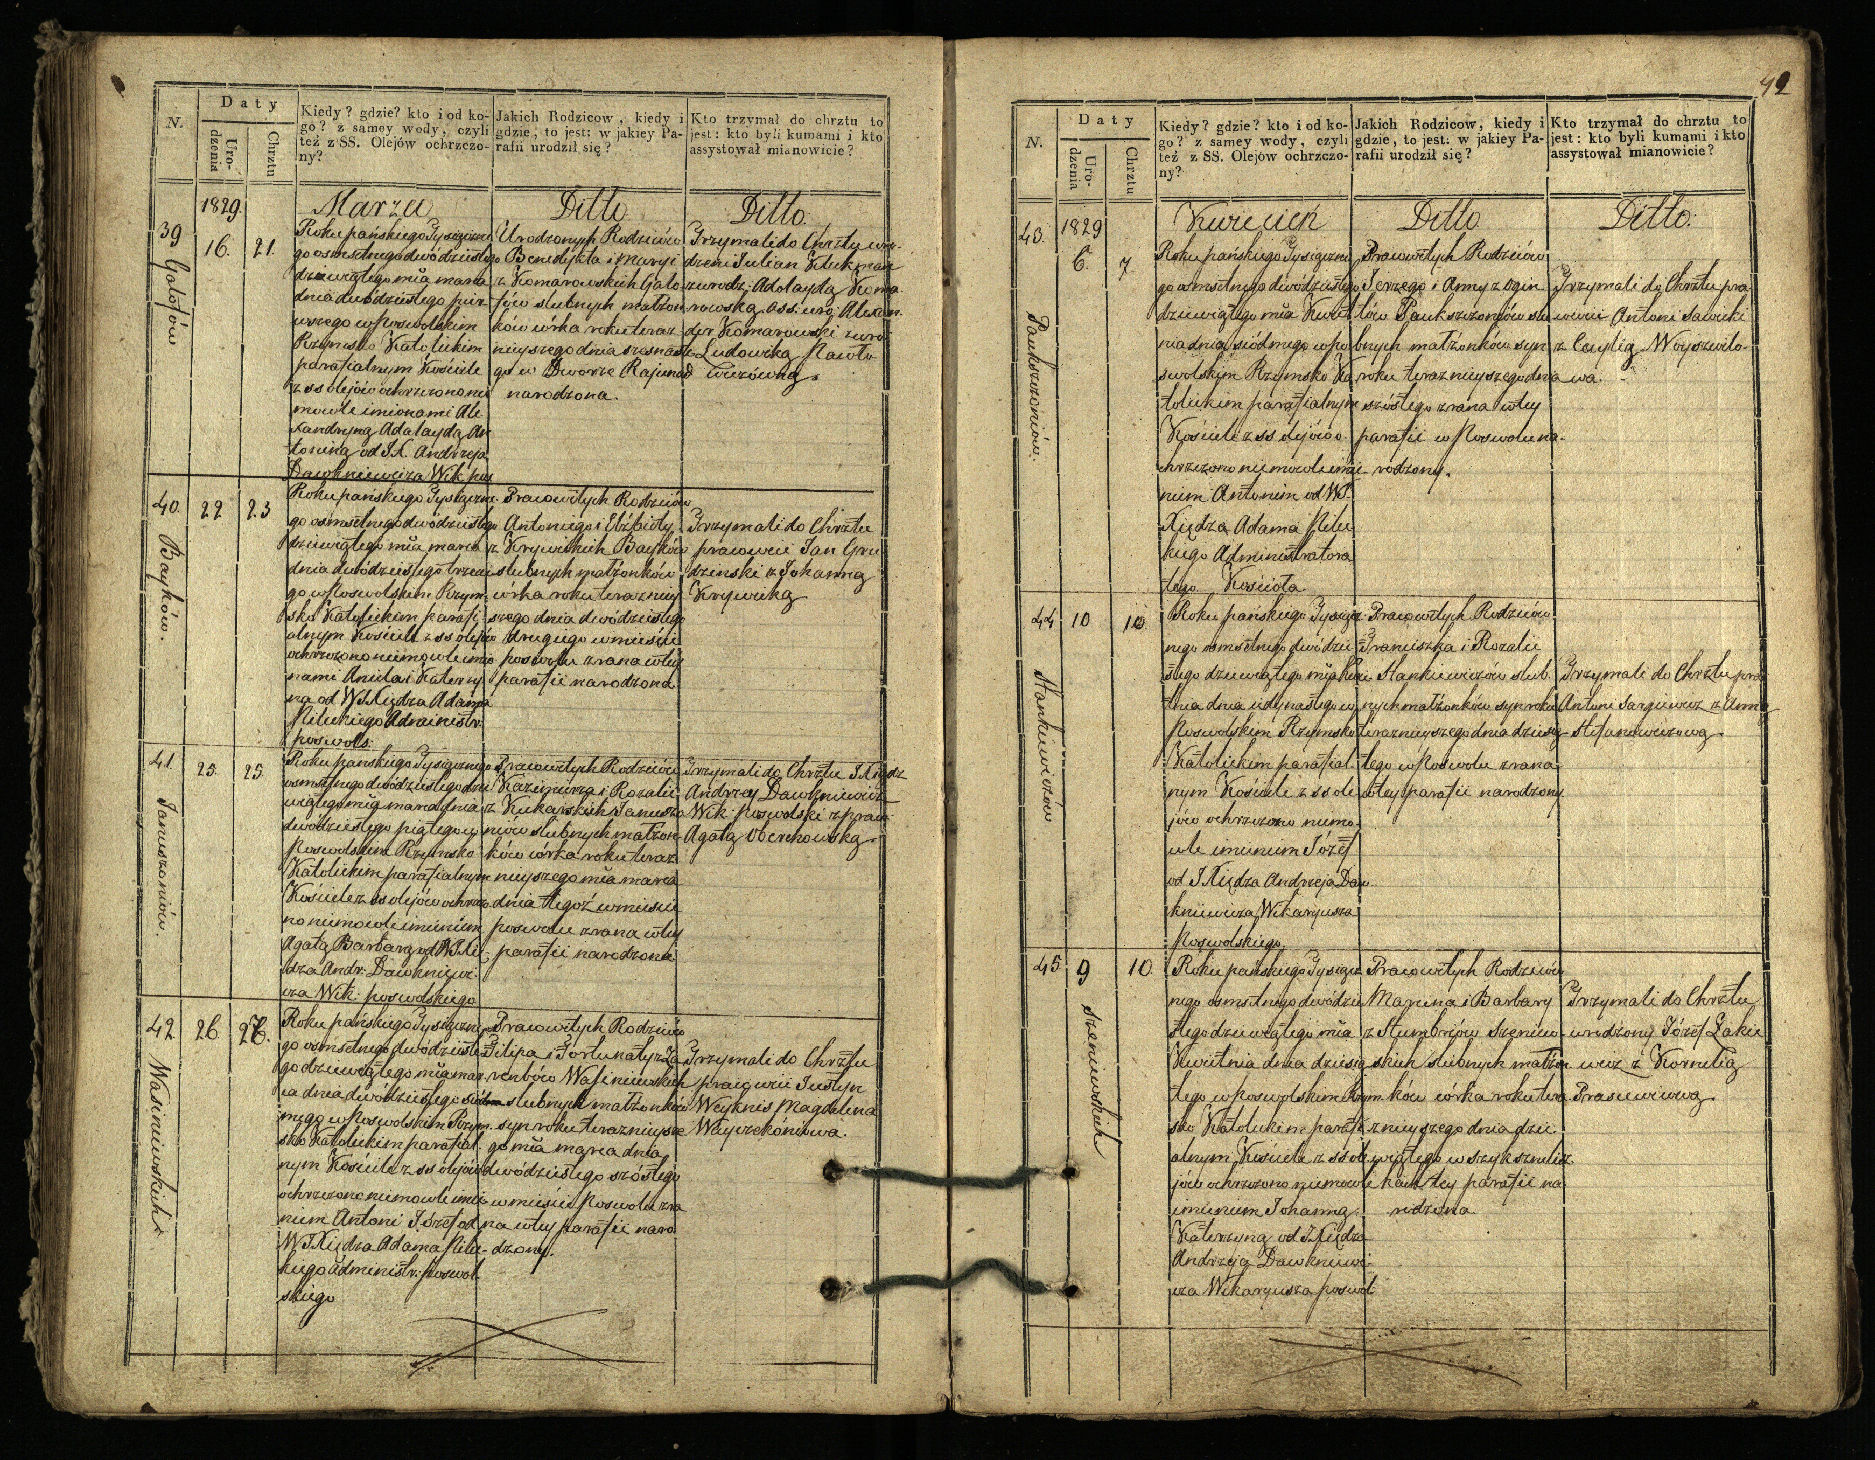 N.
Daty
Uro-
dzenia
Chrztu
Kiedy? gdzie? kto i od ko-
go? z samey wody, czyli
też z SS. Olejów ochrzczo-
ny?
Jakich Rodzicow, kiedy i
gdzie, to jest: w jakiey Pa-
rafii urodził się?
Kto trzymał do chrztu to
jest: kto byli kumami i kto
assystował mianowicie?
1829.
Marza
Ditto
Ditto
39
Gatofów
16.
21.
Roku pańskiego Tysiączne
go osmsetnego dwódziestego
dziewiątego mīa marca
dnia dwódziestego pier
wszego w Poswolskim
Rzymsko Katolickim
parafialnym Kościele
z ss olejów ochrzczono nie
mowle imionami Ale
xandryną Adalaydą An
toniną od J.X. Andrzeja
Dawkniewicza Wik: pos
Urodzonych Rodziców
Benedykta i Maryi
z Komarowskich Gato
fów slubnych małżon
ków córka roku teraz
nieyszego dnia szesnaste
go w Dworze Rajuned
narodzona.
Trzymali do Chrztu uro-
dzeni Julian
z urodz: Adolaydą Koma
rowską. ass: uro: Alexan
der Komarowski z uro
Ludowiką Nawto
wiczówną.
40.
Bayków.
22
23
Roku pańskiego Tysiączne
go osmsetnego dwódziestego
dziewiątego mīa marca
dnia dwódziestego trzecie
go w Poswolskim Rzym
sko Katolickim parafi
alnym Kościele z ss olejów
ochrzczono niemowle imio
nami Aniela i Katarzy
na od W J Xiędza Adama
Pileckiego Administr:
poswols:
Pracowitych Rodziców
Antoniego i Elżbiety
z Krywickich Bayków
slubnych małżonków
córka roku teraznniey
szego dnia dwódziestego
drugiego w mieście
poswolu zrana w tey
parafii narodzona
Trzymali do Chrztu
pracowici Jan Gru
dzinski z Johanną
Krywicką
41
Januszoniów.
25.
25.
Roku pańskiego Tysiącznego
osmsetnego dwódziestego dzie
wiątego mīa marca dnia
dwódziestego piątego w
Poswolskim Rzymsko
Katolickim parafialnym
Kościele z ss olejów ochrzczo
no niemowle imieniem
Agatą Barbarą od W J Xię
dza Andr: Dawkniewi
cza Wik: poswolskiego
Pracowitych Rodziców
Kazimierza i Rozalii
z Kukarskich Janusza
niów slubnych małżon
ków córka roku teraz
nieyszego mīa marca
dnia tegoż w mieście
poswolu zrana w tey
parafii narodzona
Trzymali do Chrztu J Xiądz
Andrzey Dawkniewicz
Wik: poswolski z praco
Agatą
42
Wasiniewskich
26.
27.
Roku pańskiego Tysiączne
go osmsetnego dwódzieste
go dziewiątego mīa mar
ca dnia dwódziestego siód
mego w Poswolskim Rzym
sko Katolickim parafial
nym Kościele z ss olejów
ochrzczono niemowle imie
niem Antoni Józef od
W J Xiędza Adama Pilec-
kiego Administr: poswol
skiego
Pracowitych Rodziców
Filipa i Fortunaty z Za
rembów Wasiniewskich
slubnych małżonków
syn roku terazniejsze
go mīa marca dnia
dwódziestego szóstego
w mieście Poswolu zra
na w tey parafii naro
dzony.
Trzymali do Chrztu
pracowici Justyn
Weyknis Magdalena
Wayczekóniowa.
92
N.
Daty
Uro-
dzenia
Chrztu
Kiedy? gdzie? kto i od ko-
go? z samey wody, czyli
też z SS. Olejów ochrzczo-
ny?
Jakich Rodzicow, kiedy i
gdzie, to jest: w jakiey Pa-
rafii urodził się?
Kto trzymał do chrztu to
jest: kto byli kumami i kto
assystował mianowicie?
1829
Kwiecień
Ditto
Ditto.
43.
Paukszczoniów.
6.
7
Roku pańskiego Tysiączne
go osmsetnego dwódziestego
dziewiątego mīa Kwiet
nia dnia siódmego w po
swolskim Rzymsko Ka
tolickim parafialnym
Kościele z ss olejów o
chrzczono niemowle imie
niem Antonim od WJ
Xiędza Adama Pilec
kiego Administratora
tego Kościoła
Pracowitych Rodziców
Jerzego i Anny z Ogin
tów Paukszczoniów slu
bnych małżonków syn
roku teraznieyszego dnia
szóstego zrana w tey
parafii w Poswolu na-
rodzony.
Trzymali do Chrztu pra
cowici Antoni Sawicki
z Cecylią Woyszwiło-
wa.
44
Stankiewiczów
10
10.
Roku pańskiego Tysiącz
nego osmsetnego dwódzie
stego dziewiątego mīa Kwie
tnia dnia w
Poswolskim Rzymsko
Katolickim parafial
nym Kościele z ss ole
jów ochrzczono niemo
wle imieniem Józef
od J Xiędza Andrzeja Daw
kniewicza Wikaryusza
Poswolskiego
Pracowitych Rodziców
Franciszka i Rozalii
Stankiewiczów slub
nych małżonków syn roku
teraznieyszego dnia dziesią
tego w Poswolu zrana
w tey parafii narodzony
Trzymali do Chrztu pra
Antoni Sargiewicz z Anną
Stefanowiczową
45
Szeniewskich
9
10.
Roku pańskiego Tysiącz
nego osmsetnego dwódzie
stego dziewiątego mīa
Kwietnia dnia dziesią
tego w Poswolskim Rzym
sko Katolickim parafi
alnym Kościele z ss ole
jów ochrzczono niemowle
imieniem Johanną
Katerzyną od J Xiędza
Andrzeja Dawkniewi
cza Wikaryusza poswol
Pracowitych Rodziców
Marcina i Barbary
z Stumbrów Szeniew
skich slubnych małżon
ków córka roku tera
znieyszego dnia dzie
wiątego w
tey parafii na
rodzona
Trzymali do Chrztu
urodzony Józef Łakie
wicz z Kornelią